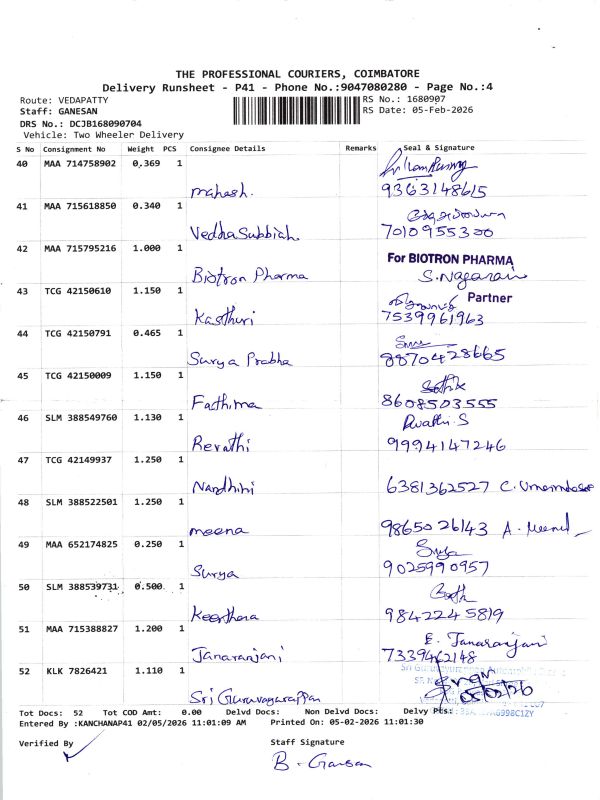 THE PROFESSIONAL COURIERS, COIMBATORE
Delivery Runsheet - P41 - Phone No.:9047080280 - Page No.:4
Route: VEDAPATTY
RS No.: 1680907
Staff: GANESAN
RS Date: 05-Feb-2026
DRS No.: DCJB168090704
Vehicle: Two Wheeler Delivery
S No Consignment No Weight PCS Consignee Details Remarks Seal & Signature
40 MAA 714758902 0,369 1
mahesh. 9363148615
41 MAA 715618850 0.340 1
Vedha Subbiah 7010955300
42 MAA 715795216 1.000 1 For BIOTRON PHARMA
Biotron Pharma S. Nagarajan
43 TCG 42150610 1.150 1 Partner
Kasthuri 7539961963
44 TCG 42150791 0.465 1
Surya Prabha 8870428665
45 TCG 42150009 1.150 1
Fathima 8608503555
46 SLM 388549760 1.130 1 Revathi S
Revathi 9994147246
47 TCG 42149937 1.250 1
Nandhini 6381362527 C.
48 SLM 388522501 1.250 1
meena 9865026143 A. Meena
49 MAA 652174825 0.250 1 Surya
Surya 9025990957
50 SLM 388539731 0.500 1
Keerthana 9842245819
51 MAA 715388827 1.200 1 E. Janaranjani
Janaranjani 7339462148
52 KLK 7826421 1.110 1
Sri Guruvayurappan 05/02/26
Tot Docs: 52 Tot COD Amt: 0.00 Delvd Docs: Non Delvd Docs: Delvy Pcs:
Entered By :KANCHANAP41 02/05/2026 11:01:09 AM Printed On: 05-02-2026 11:01:30
Verified By Staff Signature
B. Ganesan